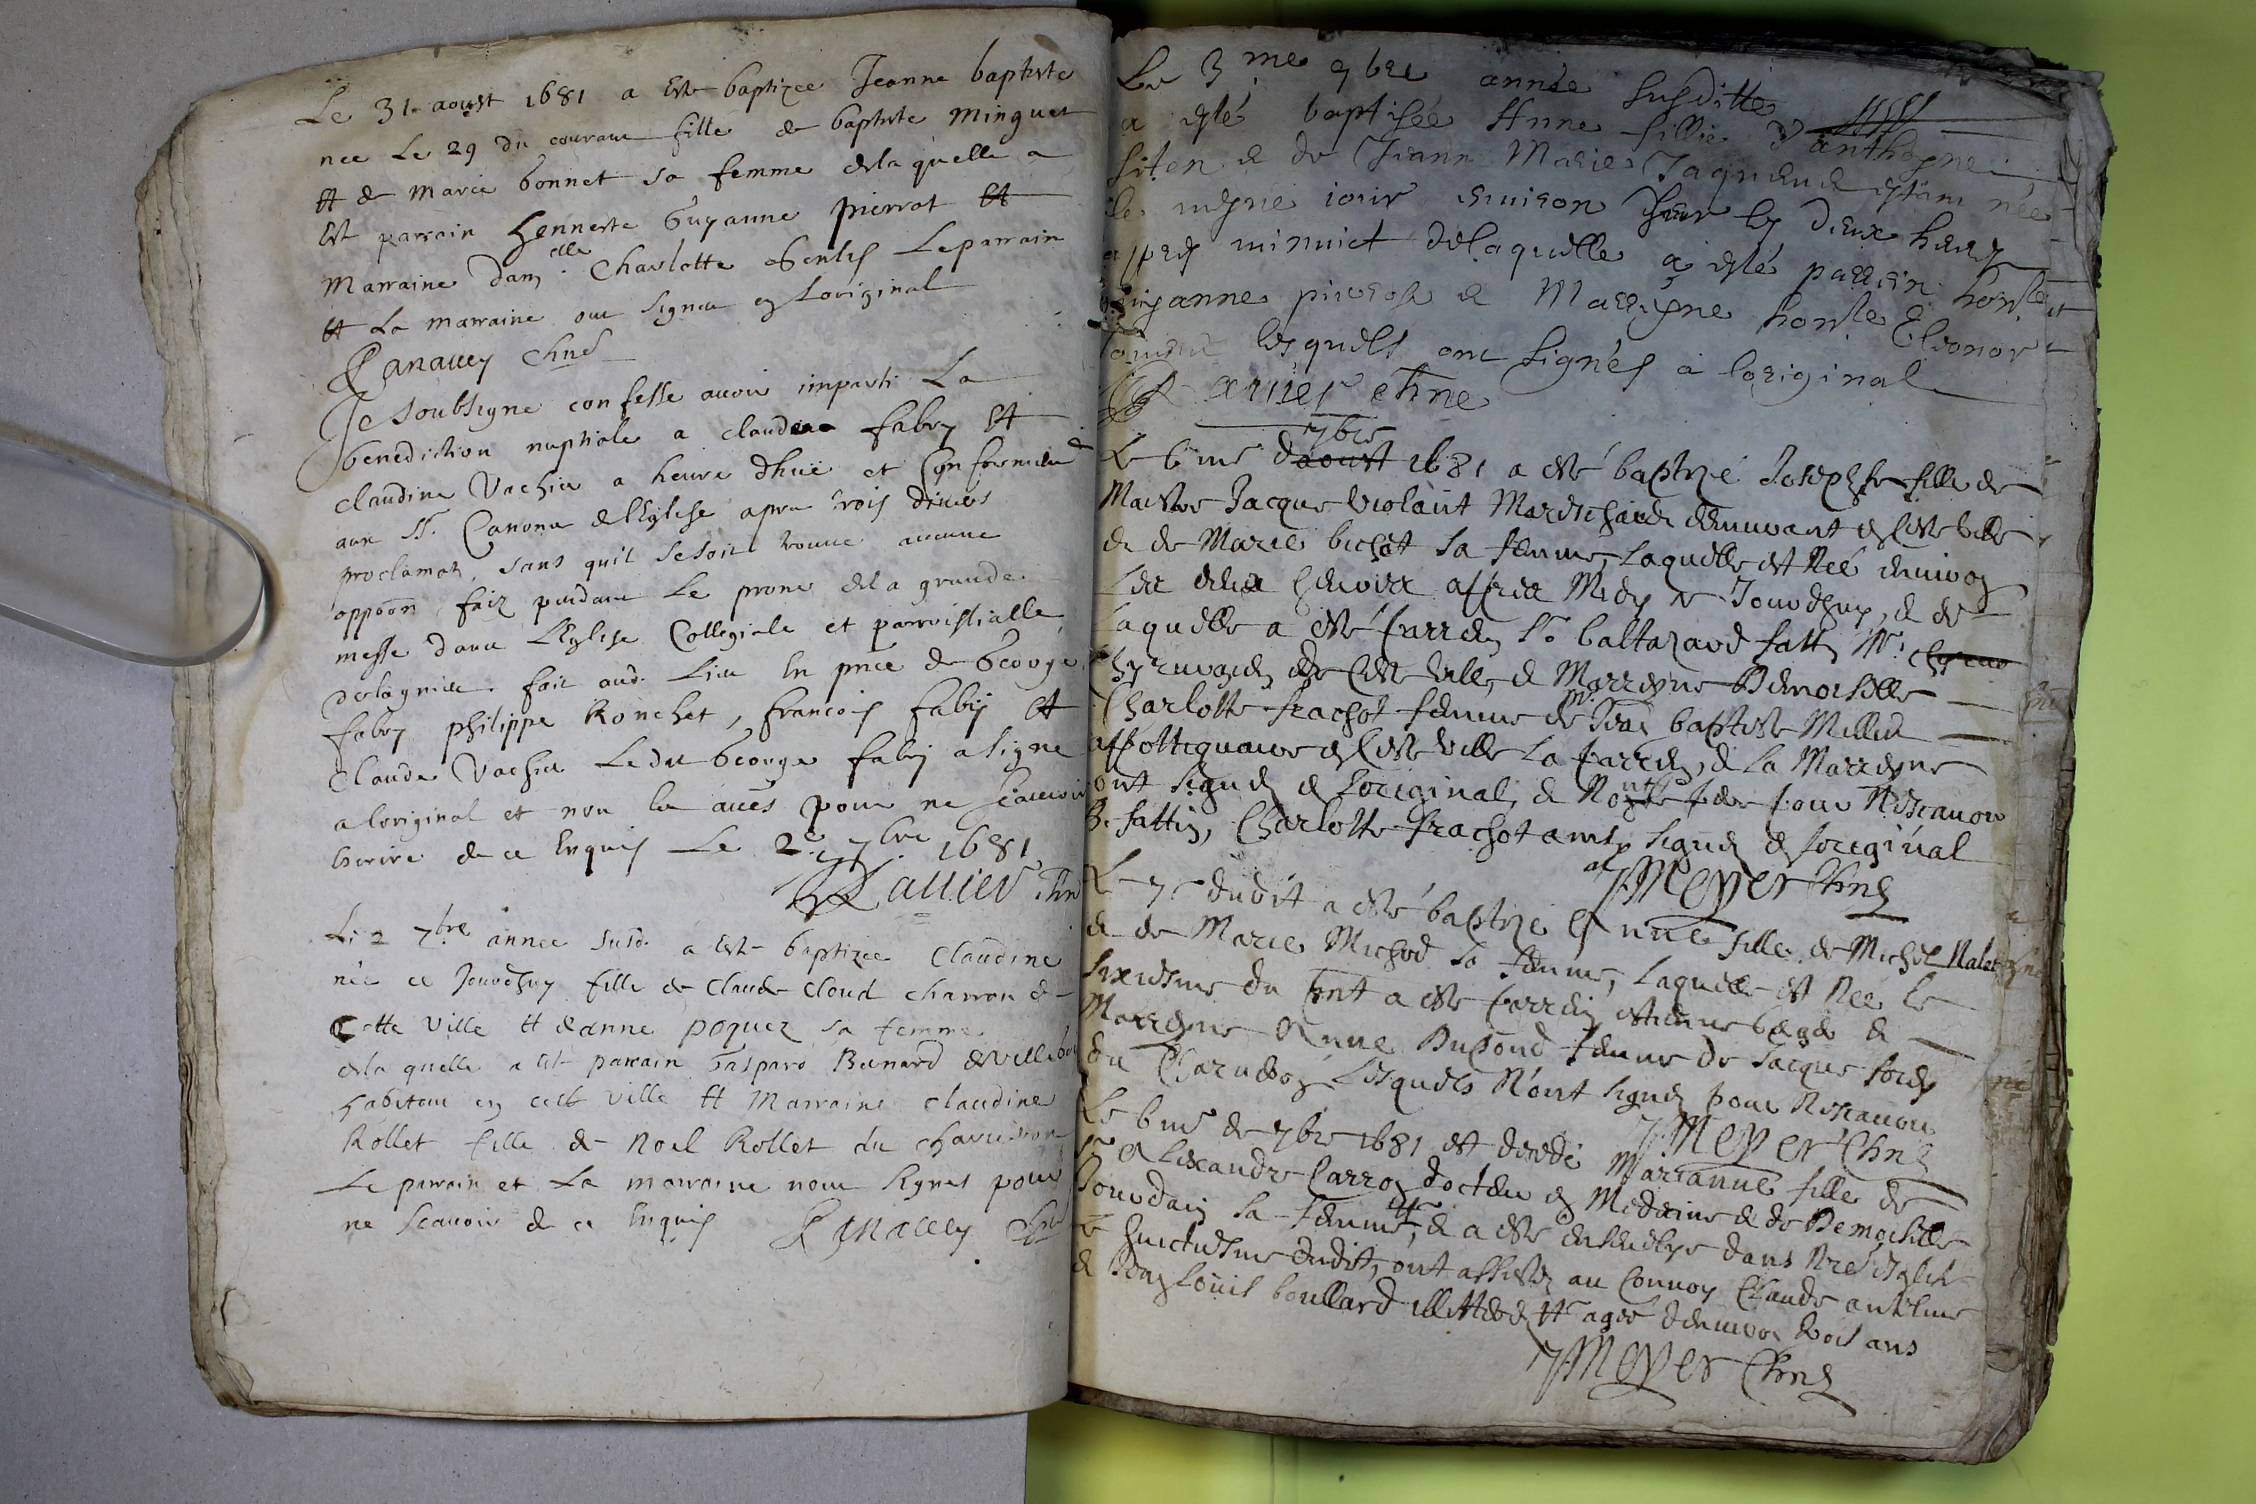 Le 31 aoust 1681 a este baptizee Jeanne baptiste
nee le 29 du courant fille de baptiste Minguet
et de Marie bonnet sa femme de laquelle a
est parrain honneste Guyanne pierrot et
Marraine Dam.elle Charlotte Le parrain
et La marraine ont signez en Loriginal
Canauey chne
Je soubsigne confesse avoir imparti La
benediction nuptiale a claude fabry et
claudine Vachier a heure dhuë et conformement
aux Sts Canons de lEglise apres trois divers
proclamat. sans quil se soit trouve aucune
oppoon faiz pendant Le prone de la grande
messe dans LEglise Collegiale et parroissialle
fait aud. Lieu En pnce de George
fabry philippe Ronchet, francois fabry et
Claude Vachier Ledit George fabry a signe
a loriginal et non les autres pour ne scavoir
Escrire de ce Enquis Le 2e 7bre 1681
chne
Le 2 7bre annee susd. a este baptizee Claudine
née ce Jourdhuy fille de Claude Cloud charron de
Cette Ville et deanne poquez sa femme
de la quelle a est parrain Gaspard Benard de
habitant en cette ville et Marraine claudine
Rollet fille de Noel Rollet du
Le parrain et La marraine nont signes pour
ne scavoir de ce Enquis Canauey chne
Le 3 me 7bre année susditte
a esté baptisée Anne fillie d'anthoyne
et de Jeanne Marie estant née
le mesme iour environ sur les deux heures
appres minuict delaquelle a esté parrein hon.ble
guyanne pierrot et Marreyne hon.ble Eleonor
lesquels ont signés a loriginal
chne
7bre
Le 6 me daoust 1681 a esté baptizé Josephte fille de
Maistre Jacque Violant Mareschard demeurant en ceste ville
et de Marie bichat sa femme, laquelle est Née environ
les deux heures appres Midy Jourdhuy, et de
Laquelle a esté parrein Sr. baltazard fatti Mr.
Chyrurgien de ceste ville, et Marreyne Demoiselle
Charlotte frachot femme de Mr Jean baptiste Millet
appotiquaire en ceste ville La parrein, et La Marreyne
ont signez en Loriginal, et Non le pere pour Nescavoir
B. fattin, Charlotte frachot ainsy signez en Loriginal
Meyer Chne
Le 7e dudit a esté baptizé Anne fille de Michel Nalet
et de Marie Michod sa femme, Laquelle est Née le
sixiesme du pnt a esté parrein estienne et
Marreyne Anne Dupond femme de Jacque
du Lesquels N'ont signez pour Nescavoir
Meyer Chne
Le 6 me de 7bre 1681 est decedé Marianne fille de
Sr Alexandre Carron docteur en Medecine et de Demoiselle
Jourdain sa femme, et a esté ensevelye dans Nre esglise
Le huictiesme dudit, ont assisté au Convoy Claude anthelme
et Jean Louis boullard agée denviron trois ans
Meyer Chne